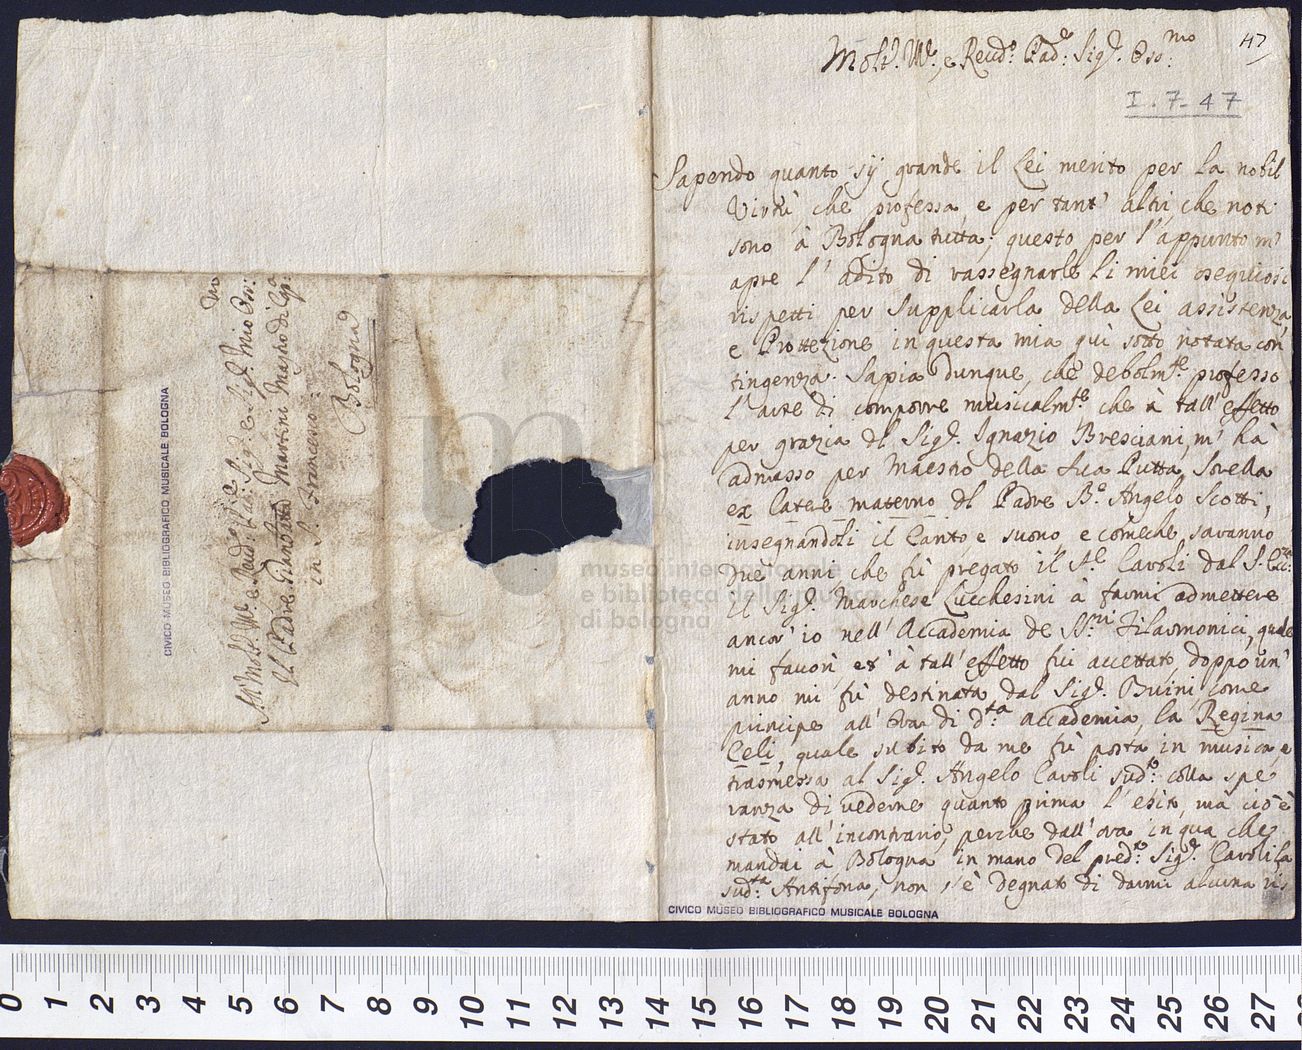 Al Molto Ill.e e Rend.o Pad.e Sig.e e Sig.r mio Oss.mo
Il Padre Gianbatta Martini Maestro di Cap.a
in S. Francesco:
Bologna
CIVICO MUSEO BIBLIOGRAFICO MUSICALE BOLOGNA
museo internazionale
e biblioteca della musica
di bologna
47
Molt.o Ill.e, e Rend.o Pad.e: Sig.e Oss.mo
I.7-47
Sapendo quanto sÿ grande il Lei merito per la nobil
Virtù, che professa, e per tant' altri, che noti
sono à Bologna tutta; questo per l'appunto m'
apre l'adito di rassegnarle li miei osequiosi
rispetti per supplicarla della Lei assistenza,
e Prottezione in questa mia quì sotto notata con
tingenza. Sapia dunque, che debolm.te professo
l'arte di comporre musicalm.te che à tall'effetto
per grazia del Sig.r Ignazio Bresciani, m'hà
admasso per Maestro della sua Putta, Sorella
ex Latere materno del Padre B.o Angelo Scotti,
insegnandoli il Canto, e suono, e comeche saranno
due anni che fù pregato il S.e Caroli dal S. Ecc.za
il Sig.r Marchese Lucchesini à farmi admettere
ancor' io nell'Accademia de SS.ri Filarmonici, quale
mi favorì et' à tall'effetto fui accettato, doppo un'
anno mi fù destinata dal Sig.r Buini come
principe all'ora di d.ta accademia, la Regina
Celi, quale subito da me fù posta in musica, e
trasmessa al Sig.r Angelo Caroli sud.o: colla spe
ranza di vederne quanto prima l'esito, mà ciò è
stato all'incontrario, perche dall'ora in qua che
mandai à Bologna in mano del pred.o: Sig.r Caroli la
sud.ta Antifona, non s'è degnato di darmi alcuna ris
CIVICO MUSEO BIBLIOGRAFICO MUSICALE BOLOGNA
0 1 2 3 4 5 6 7 8 9 10 11 12 13 14 15 16 17 18 19 20 21 22 23 24 25 26 27 28